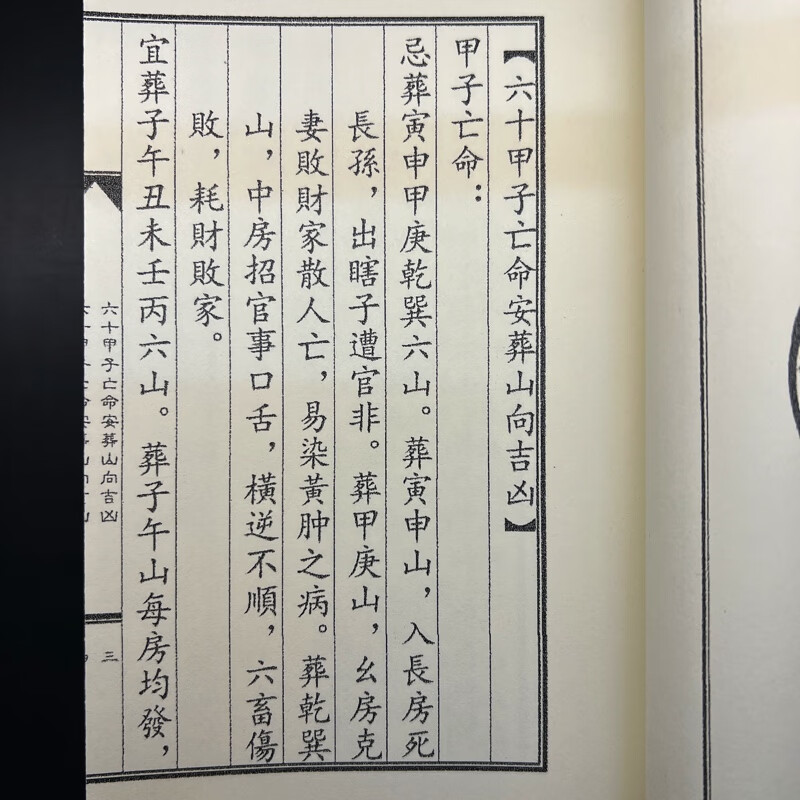 【六十甲子亡命安葬山向吉凶】
甲子亡命：
忌葬寅申甲庚乾巽六山。葬寅申山，入長房死
長孫，出瞎子遭官非。葬甲庚山，幺房克
妻敗財家散人亡，易染黃肿之病。葬乾巽
山，中房招官事口舌，橫逆不順，六畜傷
敗，耗財敗家。
宜葬子午丑未壬丙六山。葬子午山每房均發，
六十甲子亡命安葬山向吉凶
三